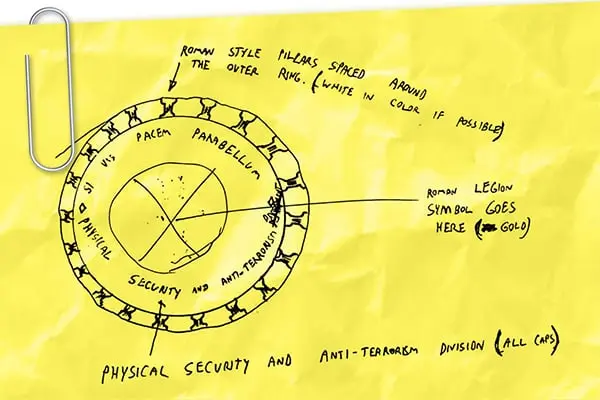 ROMAN STYLE PILLARS SPACED AROUND
THE OUTER RING. (WHITE IN COLOR IF POSSIBLE)
SI VIS PACEM PARABELLUM
PHYSICAL SECURITY AND ANTI-TERRORISM
ROMAN LEGION
SYMBOL GOES
HERE (GOLD)
PHYSICAL SECURITY AND ANTI-TERRORISM DIVISION (ALL CAPS)